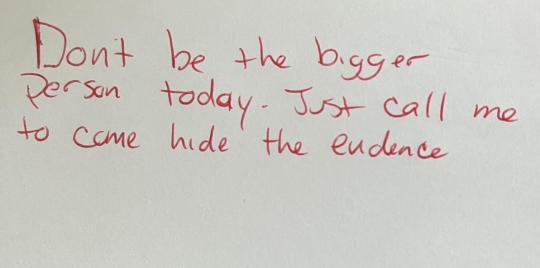 Don't be the bigger
person today. Just call me
to come hide the evidence